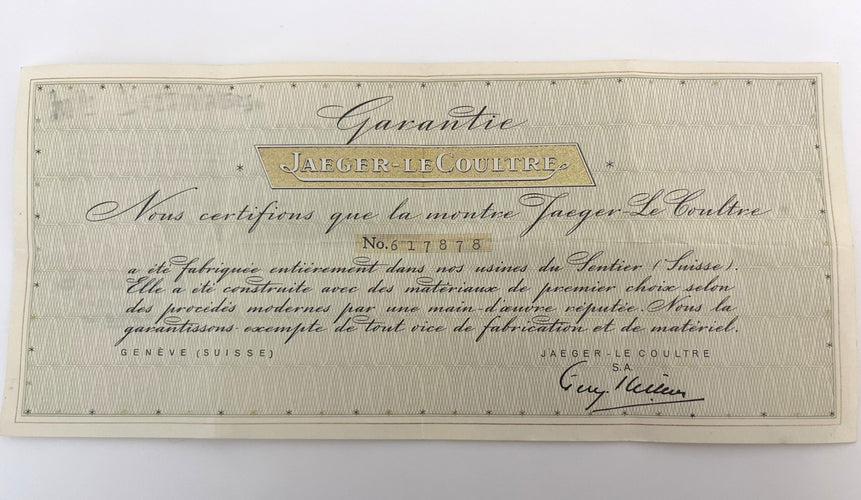 Garantie
JAEGER-LECOULTRE
Nous certifions que la montre Jaeger-LeCoultre
No. 617878
a été fabriquée entièrement dans nos usines du Sentier (Suisse).
Elle a été construite avec des matériaux de premier choix selon
des procédés modernes par une main-d'œuvre réputée. Nous la
garantissons exempte de tout vice de fabrication et de matériel.
GENÈVE (SUISSE)
JAEGER-LE COULTRE
S.A.